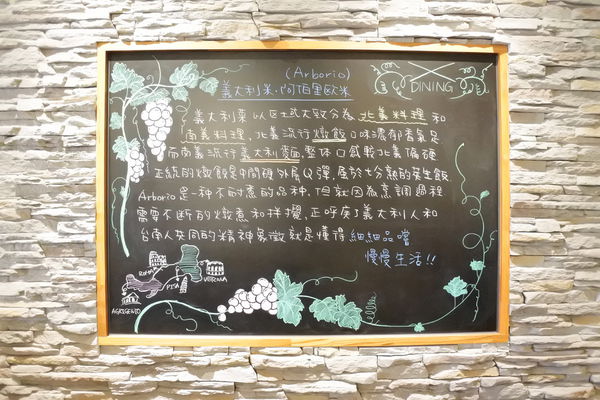 (Arborio)
義大利米.阿伯里歐米
DINING
義大利菜以區域大致分為 北義料理 和
南義料理.北義流行燉飯口味濃郁香氣足
而南義流行義大利麵.整体口感較北義偏硬
正統的燉飯是中間硬外層Q彈.屬於七分熟的夾生飯.
Arborio是一种不耐煮的品种.但就因為烹調過程
需要不斷的燉煮和拌攪.正呼庚了義大利人和
台南人共同的精神象徵就是懂得 細細品嚐
慢慢生活!!
ROMA
VERONA
PISA
AGRIGENTO